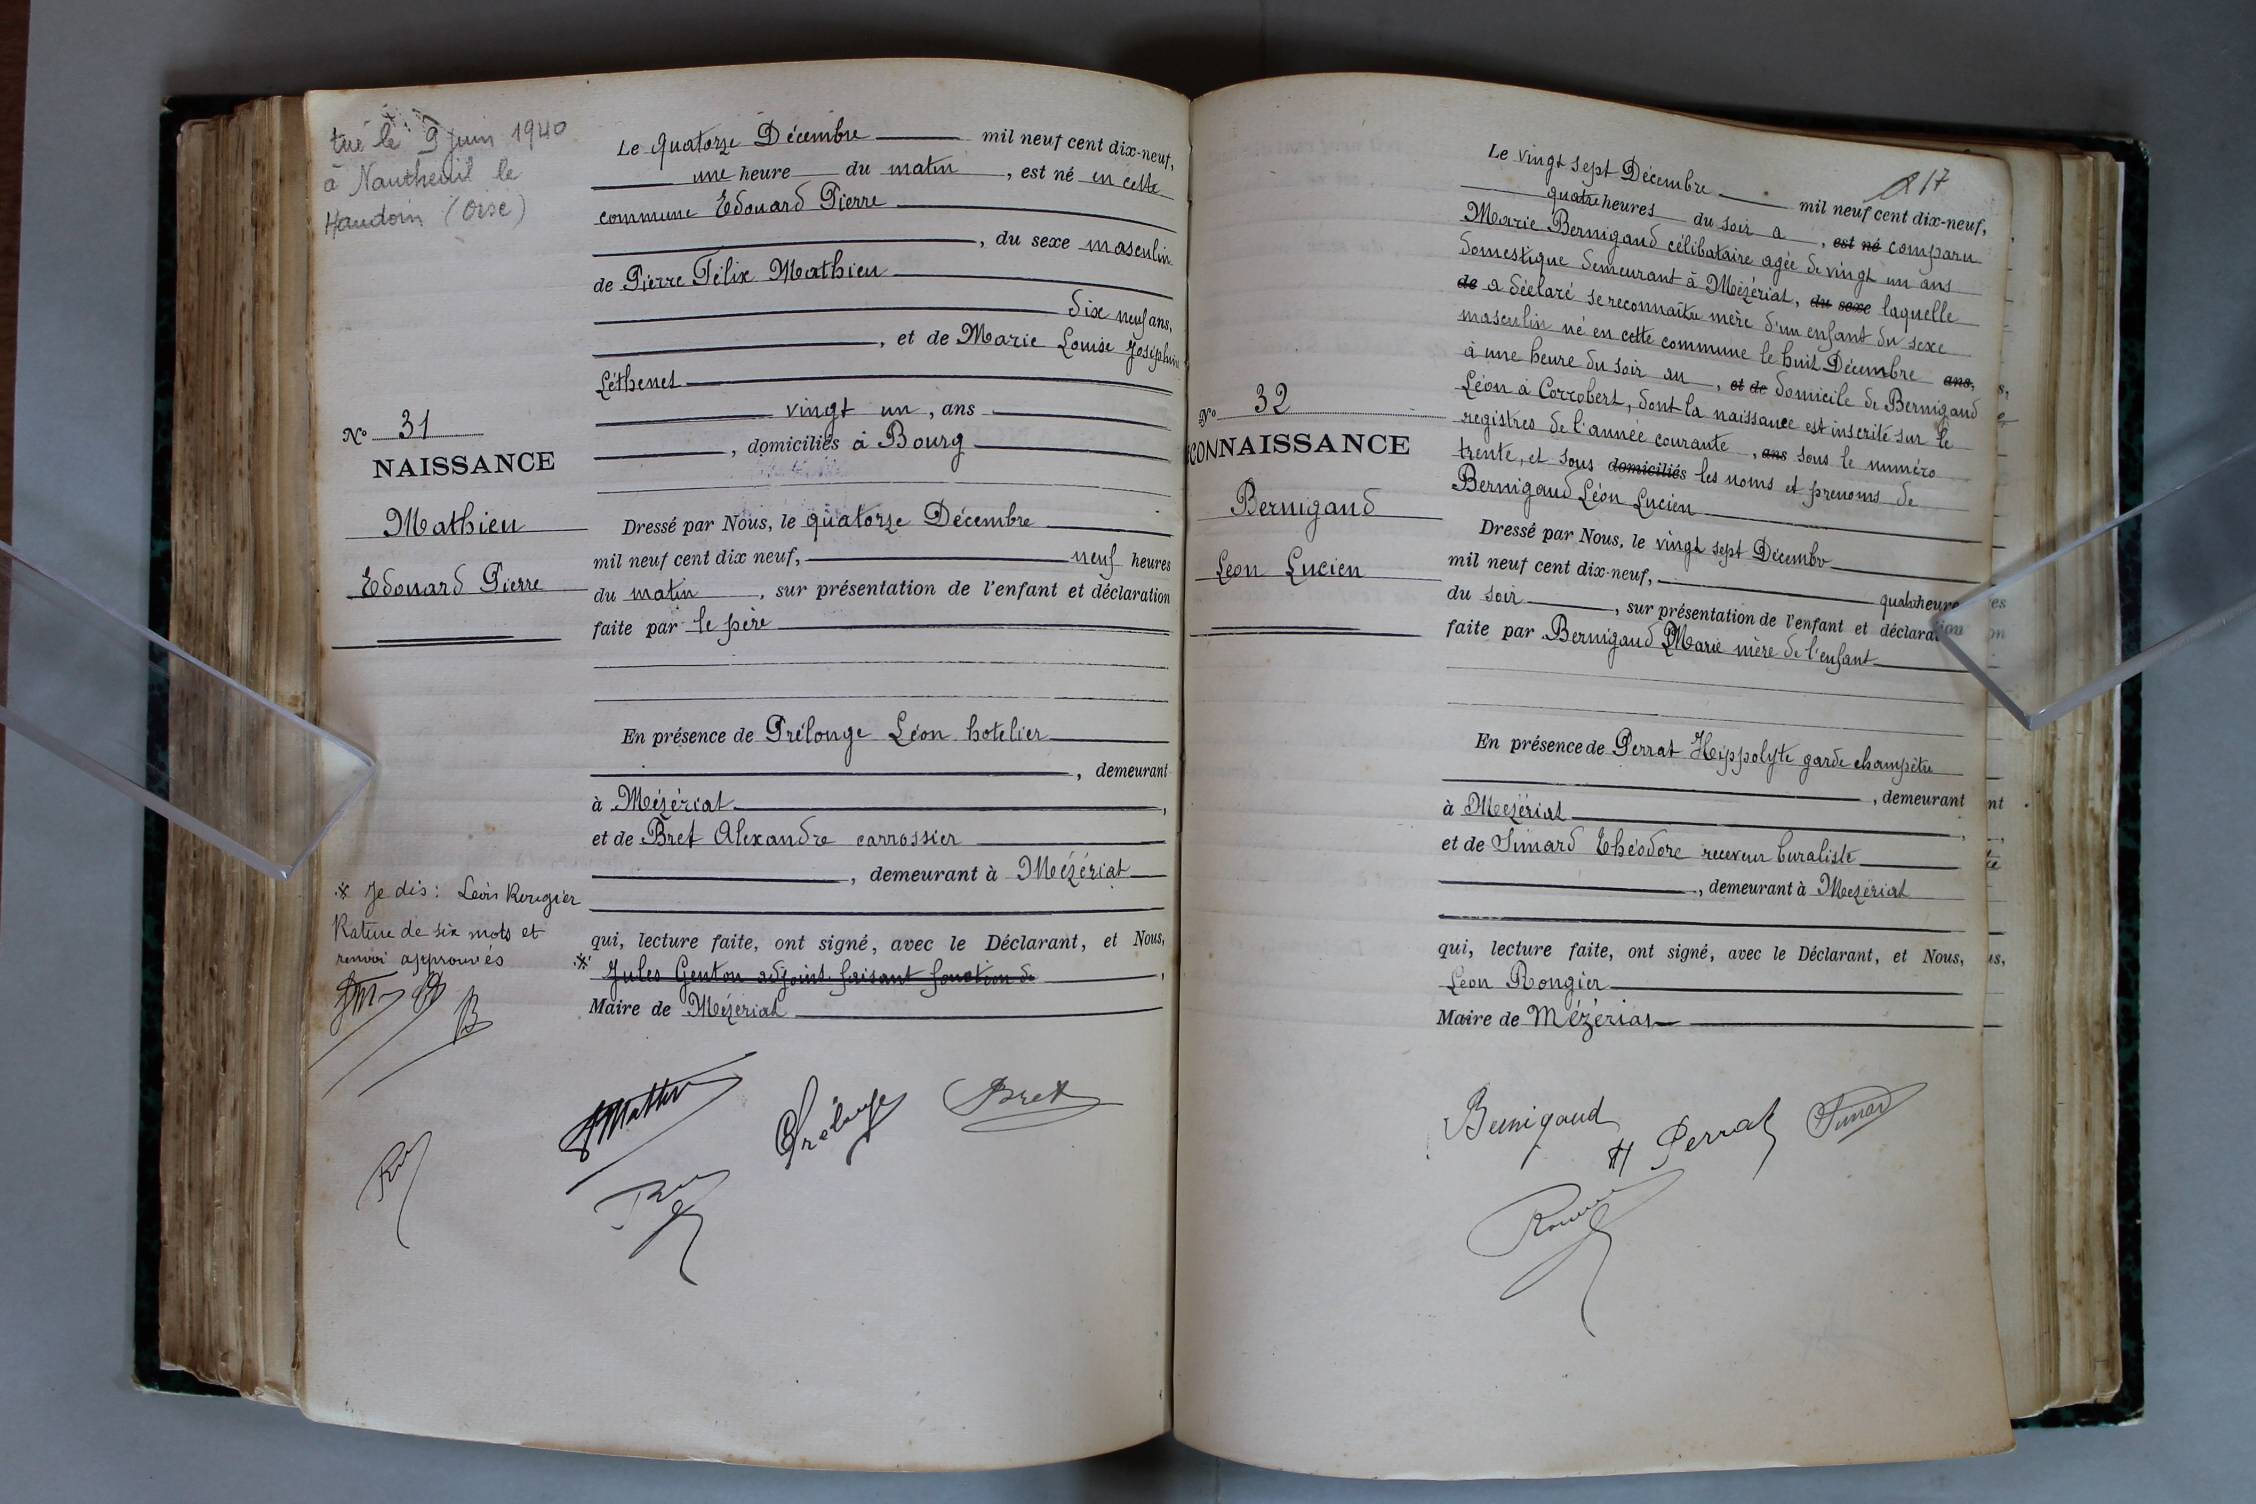 tué le 9 juin 1940
à Nautheuil le
Haudoin (Oise)
Le quatorze Décembre mil neuf cent dix-neuf,
une heure du matin, est né en cette
commune Edouard Pierre
, du sexe masculin
de Pierre Félix Mathieu
dix neuf ans,
, et de Marie Louise Joséphine
Léthenet
vingt un, ans
, domiciliés à Bourg
N° 31
NAISSANCE
Mathieu
Edouard Pierre
Dressé par Nous, le quatorze Décembre
mil neuf cent dix neuf, neuf heures
du matin, sur présentation de l'enfant et déclaration
faite par le père
En présence de Prélonge Léon hotelier
, demeurant
à Mézériat,
et de Bret Alexandre carrossier
, demeurant à Mézériat
qui, lecture faite, ont signé, avec le Déclarant, et Nous,
※ Jules Genton adjoint faisant fonction de,
Maire de Mézériat
※ Je dis: Léon Rougier
Rature de six mots et
renvoi approuvés
Prélonge Bret
217
Le vingt sept Décembre mil neuf cent dix-neuf,
quatre heures du soir a, est né comparu
Marie Bernigaud célibataire agée de vingt un ans
domestique demeurant à Mézériat, du sexe laquelle
de a déclaré se reconnaître mère d'un enfant du sexe
masculin né en cette commune le huit Décembre ans,
à une heure du soir au, et de domicile de Bernigaud
Léon à Corrobert, dont la naissance est inscrite sur le
registres de l'année courante, ans sous le numéro
trente, et sous domiciliés les noms et prenoms de
Bernigaud Léon Lucien
N° 32
CONNAISSANCE
Bernigaud
Léon Lucien
Dressé par Nous, le vingt sept Décembre
mil neuf cent dix-neuf, quatre heures
du soir, sur présentation de l'enfant et déclaration
faite par Bernigaud Marie mère de l'enfant
En présence de Perrat Hippolyte garde champêtre
, demeurant
à Mezériat,
et de Simard Théodore receveur buraliste
, demeurant à Mezériat
qui, lecture faite, ont signé, avec le Déclarant, et Nous,
Léon Rougier
Maire de Mézériat
Bernigaud
H Perrat Simard